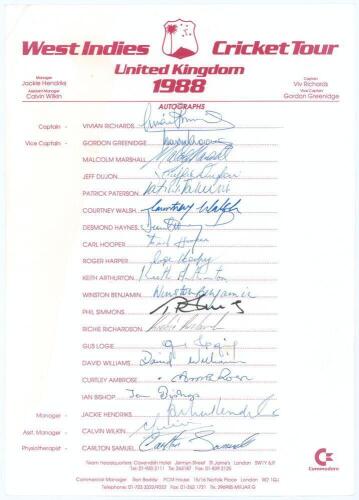 West Indies Cricket Tour
United Kingdom
1988
Manager
Jackie Hendriks
Assistant Manager
Calvin Wilkin
Captain
Viv Richards
Vice Captain
Gordon Greenidge
AUTOGRAPHS
Captain - VIVIAN RICHARDS
Vice Captain - GORDON GREENIDGE
MALCOLM MARSHALL Malcolm Marshall
JEFF DUJON
PATRICK PATERSON
COURTNEY WALSH Courtney Walsh
DESMOND HAYNES
CARL HOOPER Carl Hooper
ROGER HARPER
KEITH ARTHURTON Keith Arthurton
WINSTON BENJAMIN Winston Benjamin
PHIL SIMMONS
RICHIE RICHARDSON
GUS LOGIE
DAVID WILLIAMS David Williams
CURTLEY AMBROSE
IAN BISHOP Ian Bishop
Manager - JACKIE HENDRIKS
Asst. Manager - CALVIN WILKIN
Physiotherapist - CARLTON SAMUELL Carlton Samuell
Team Headquarters: Cavendish Hotel Jermyn Street St James's London SW1Y 6JF
Commercial Manager: Ron Beddoy PCM House 15/16 Norfolk Place London W2 1QJ
Commodore